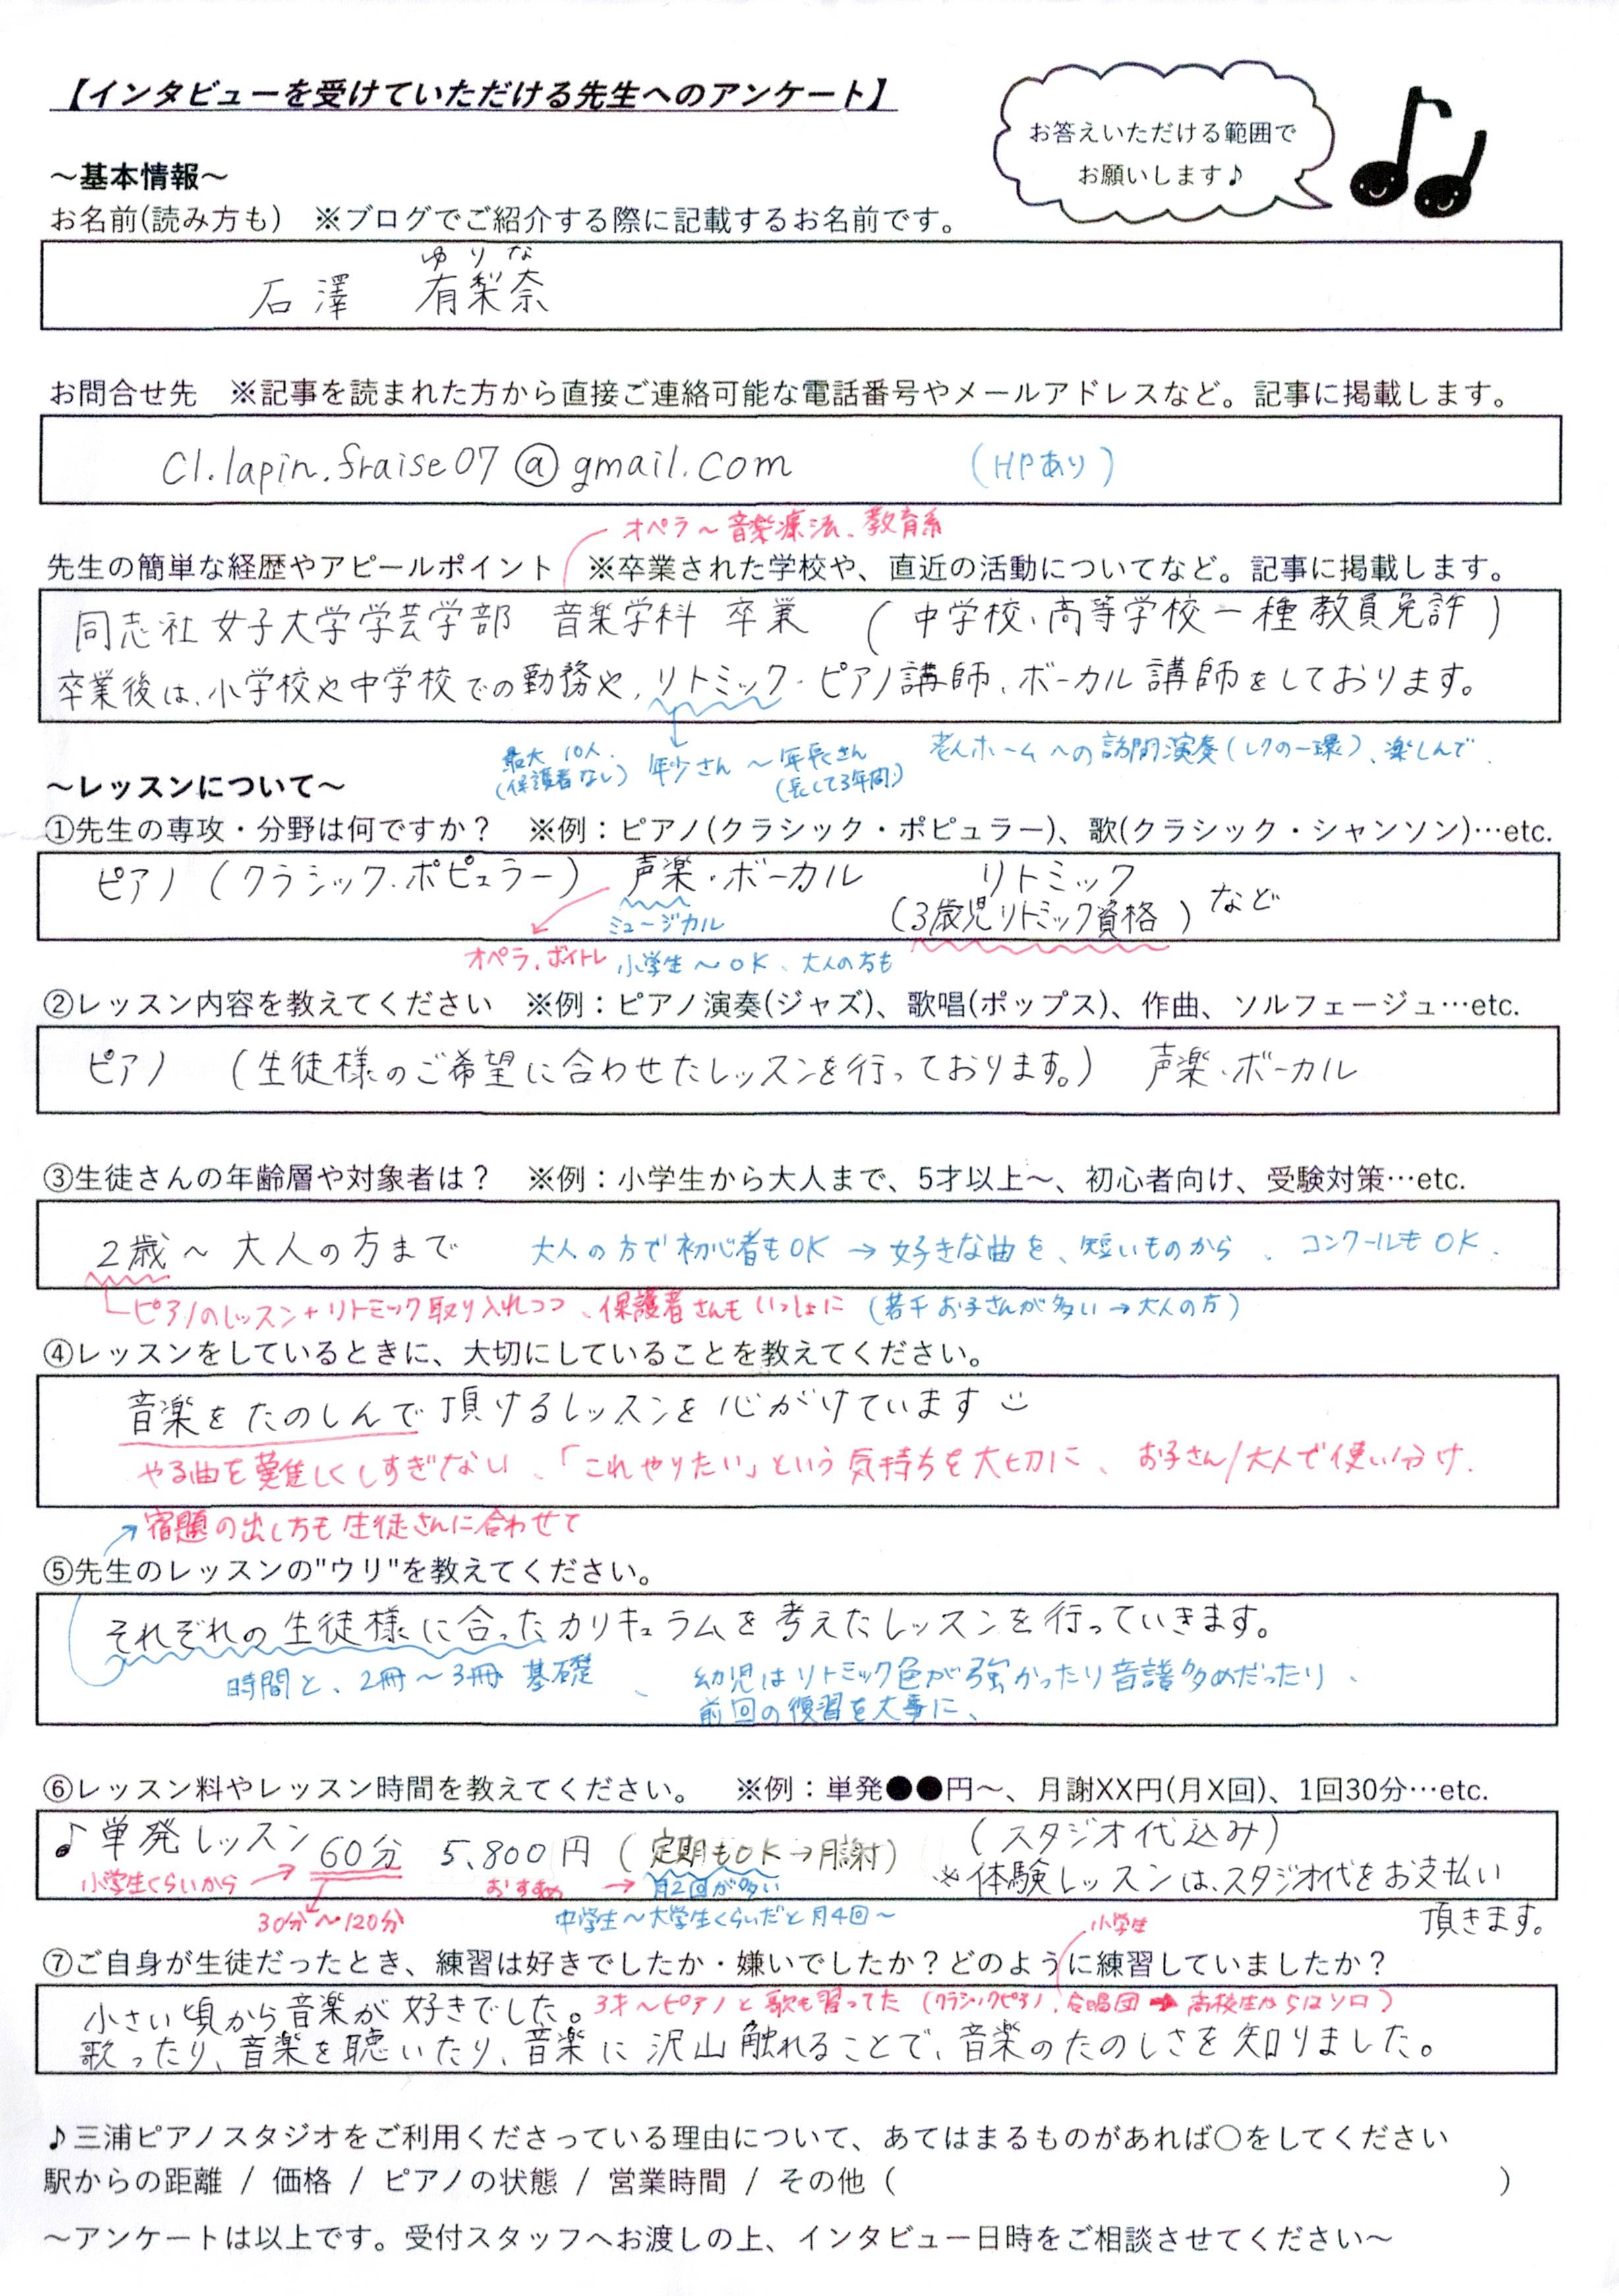 【インタビューを受けていただける先生へのアンケート】
お答えいただける範囲で
お願いします♪
～基本情報～
お名前(読み方も)　※ブログでご紹介する際に記載するお名前です。
ゆりな
石澤　有梨奈
お問合せ先　※記事を読まれた方から直接ご連絡可能な電話番号やメールアドレスなど。記事に掲載します。
cl.lapin.fraise07@gmail.com　(HPあり)
オペラ～音楽療法、教育系
先生の簡単な経歴やアピールポイント　※卒業された学校や、直近の活動についてなど。記事に掲載します。
同志社女子大学学芸学部　音楽学科　卒業　(中学校、高等学校一種教員免許)
卒業後は、小学校や中学校での勤務や、リトミック・ピアノ講師、ボーカル講師をしております。
最大10人、　年少さん～年長さん　老人ホームへの訪問演奏(レクの一環)、楽しんで、
(保護者なし)　(長くて3年間)
～レッスンについて～
①先生の専攻・分野は何ですか？　※例：ピアノ(クラシック・ポピュラー)、歌(クラシック・シャンソン)…etc.
ピアノ(クラシック・ポピュラー)　声楽・ボーカル　リトミック
(3歳児リトミック資格)　など
ミュージカル
オペラ、ボイトレ　小学生～OK、大人の方も
②レッスン内容を教えてください　※例：ピアノ演奏(ジャズ)、歌唱(ポップス)、作曲、ソルフェージュ…etc.
ピアノ　(生徒様のご希望に合わせたレッスンを行っております。)　声楽・ボーカル
③生徒さんの年齢層や対象者は？　※例：小学生から大人まで、5才以上～、初心者向け、受験対策…etc.
2歳～大人の方まで　大人の方で初心者もOK→好きな曲を、短いものから、コンクールもOK、
ピアノのレッスン＋リトミック取り入れつつ、保護者さんもいっしょに　(若干お子さんが多い→大人の方)
④レッスンをしているときに、大切にしていることを教えてください。
音楽をたのしんで頂けるレッスンを心がけています
やる曲を難しくしすぎない、「これやりたい」という気持ちを大切に、お子さん/大人で使い分け、
宿題の出し方も生徒さんに合わせて
⑤先生のレッスンの"ウリ"を教えてください。
それぞれの生徒様に合ったカリキュラムを考えたレッスンを行っていきます。
時間と、2冊～3冊　基礎、　幼児はリトミック色が強かったり音譜多めだったり、
前回の復習を大事に、
⑥レッスン料やレッスン時間を教えてください。　※例：単発●●円～、月謝XX円(月X回)、1回30分…etc.
♪単発レッスン　60分　5,800円(定期もOK→月謝)　(スタジオ代込み)
小学生くらいから→　おすすめ→月2回が多い　※体験レッスンは、スタジオ代をお支払い
30分～120分　中学生～大学生くらいだと月4回～　頂きます。
小学生
⑦ご自身が生徒だったとき、練習は好きでしたか・嫌いでしたか？どのように練習していましたか？
小さい頃から音楽が好きでした。3才～ピアノと歌も習ってた(クラシックピアノ、合唱団→高校生からはソロ)
歌ったり、音楽を聴いたり、音楽に沢山触れることで、音楽のたのしさを知りました。
♪三浦ピアノスタジオをご利用くださっている理由について、あてはまるものがあれば○をしてください
駅からの距離 / 価格 / ピアノの状態 / 営業時間 / その他（　　　）
～アンケートは以上です。受付スタッフへお渡しの上、インタビュー日時をご相談させてください～